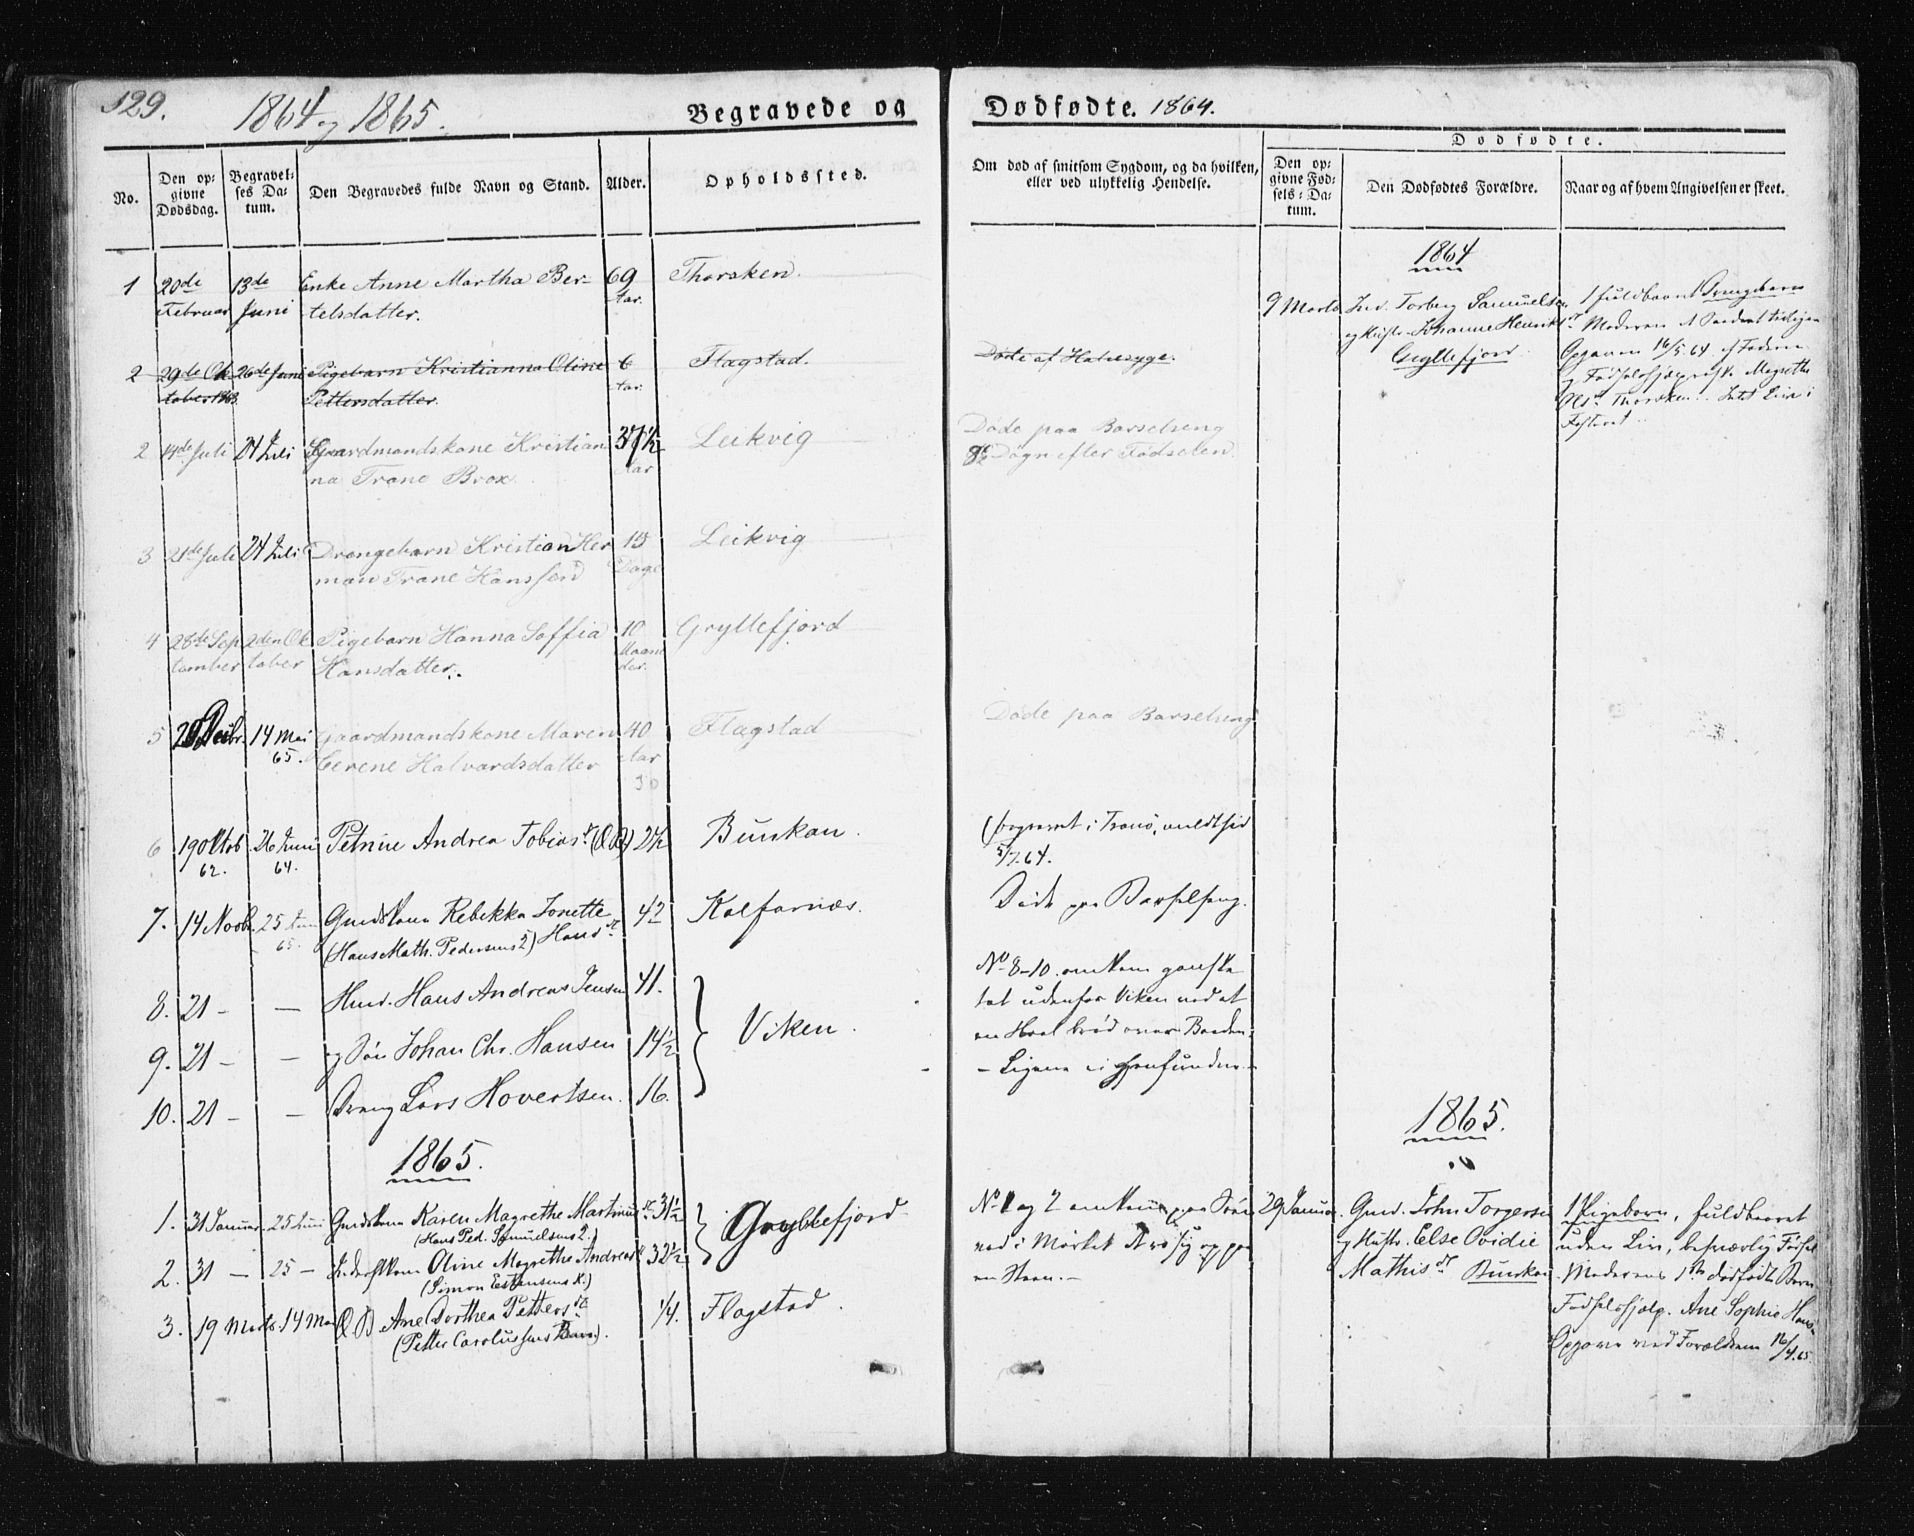 129.
1864 og 1865.
Begravede og
Dødfødte. 1864.
No.
Den opgivne Dødsdag.
Begravelses Datum.
Den Begravedes fulde Navn og Stand.
Alder.
Opholdssted.
Om død af smitsom Sygdom, og da hvilken, eller ved ulykkelig Hendelse.
Dødfødte.
Den opgivne Fødsels-Datum.
Den Dødfødtes Forældre.
Naar og af hvem Angivelsen er skeet.
1 20de 13de Enke Anne Martha Ber- 69 Thorsken.
Februar Juni telsdatter. Aar.
2 29de Ok 26de Juni Pigebarn Kristianna Oline 6 Flagstad. Døde af Halssyge.
tober 1863 Pettersdatter. Aar.
2 14de Juli 24 Juli Gaardmandskone Kristian 37½ Leikvig Døde paa Barselseng
na Trane Brox. Aar Døgn efter Fødselen.
3 21de Juli 24 Juli Drengebarn Kristian Her 15 Leikvig
man Trane Hanssen Dage
4 28de Sep 2den Ok Pigebarn Hanna Soffia 10 Gryllefjord
tember tober Hansdatter. Maane
der.
5 14 Mai Gaardmandskone Maren 40 Flagstad Døde paa Barselseng
65. Cerene Halvardsdatter Aar
6 19 Oktob 26 Juni Petrine Andrea Tobias dr 2½ Bunkan. (begravet i Tranø, meldt hid
62. 64. 5/7.64.
7. 14 Novbr 25 Juni Gmdskone Rebekka Jonette 42 Kalfarnæs. Døde paa Barselseng.
65. (Hans Math. Pedersens) Hans dr
8. 21 – — Hmd. Hans Andreas Jensen 41. No 8-10. omkom ganske
tæt udenfor Viken ved at
9. 21 – — og Søn Johan Chr. Hansen 14½ Viken. en Hval brød over Baaden.
– Ligene ei gjenfundne.
10. 21 – — Dreng Lars Hovertsen. 16.
1865.
1. 31 Januar 25 Juni Gmdskone Karen Magrethe Martinus dr 31½ Gryllefjord. No 1 og 2 omkom paa Søen
(Hans Ped. Samuelsens) ved i Mørket
2. 31 — 25 — Oline Magrethe Andreas dr 32½ en Steen.
(Simon Estensens K.)
3. 19 Marts 14 Mai Ane Dorthea Petters dr ¼. Flagstad.
(Petter Carolussens Barn).
1864
9 Marts Ind. Torberg Samuelsen 1 fuldbaaret Drengebarn
og Hustr. Johanne Henriks dr Moderen
Gryllefjord. Opgaven 16/5.64 af Faderen
og Fødselshjælperske Magrethe
Ols dr Thorsken. Intet Liv i
Fosteret.
1865.
29 Januar Gmd. John Torgersen 1 Pigebarn, fuldbaaret
og Hustr. Else Ovidie uden Liv, besværlig Fødsel
Mathis dr Bunkan Moderens 1ste dødfødte Barn
Fødselshjælp. Ane Sophie Hans dr
Opgave ved Forældrene 16/4.65